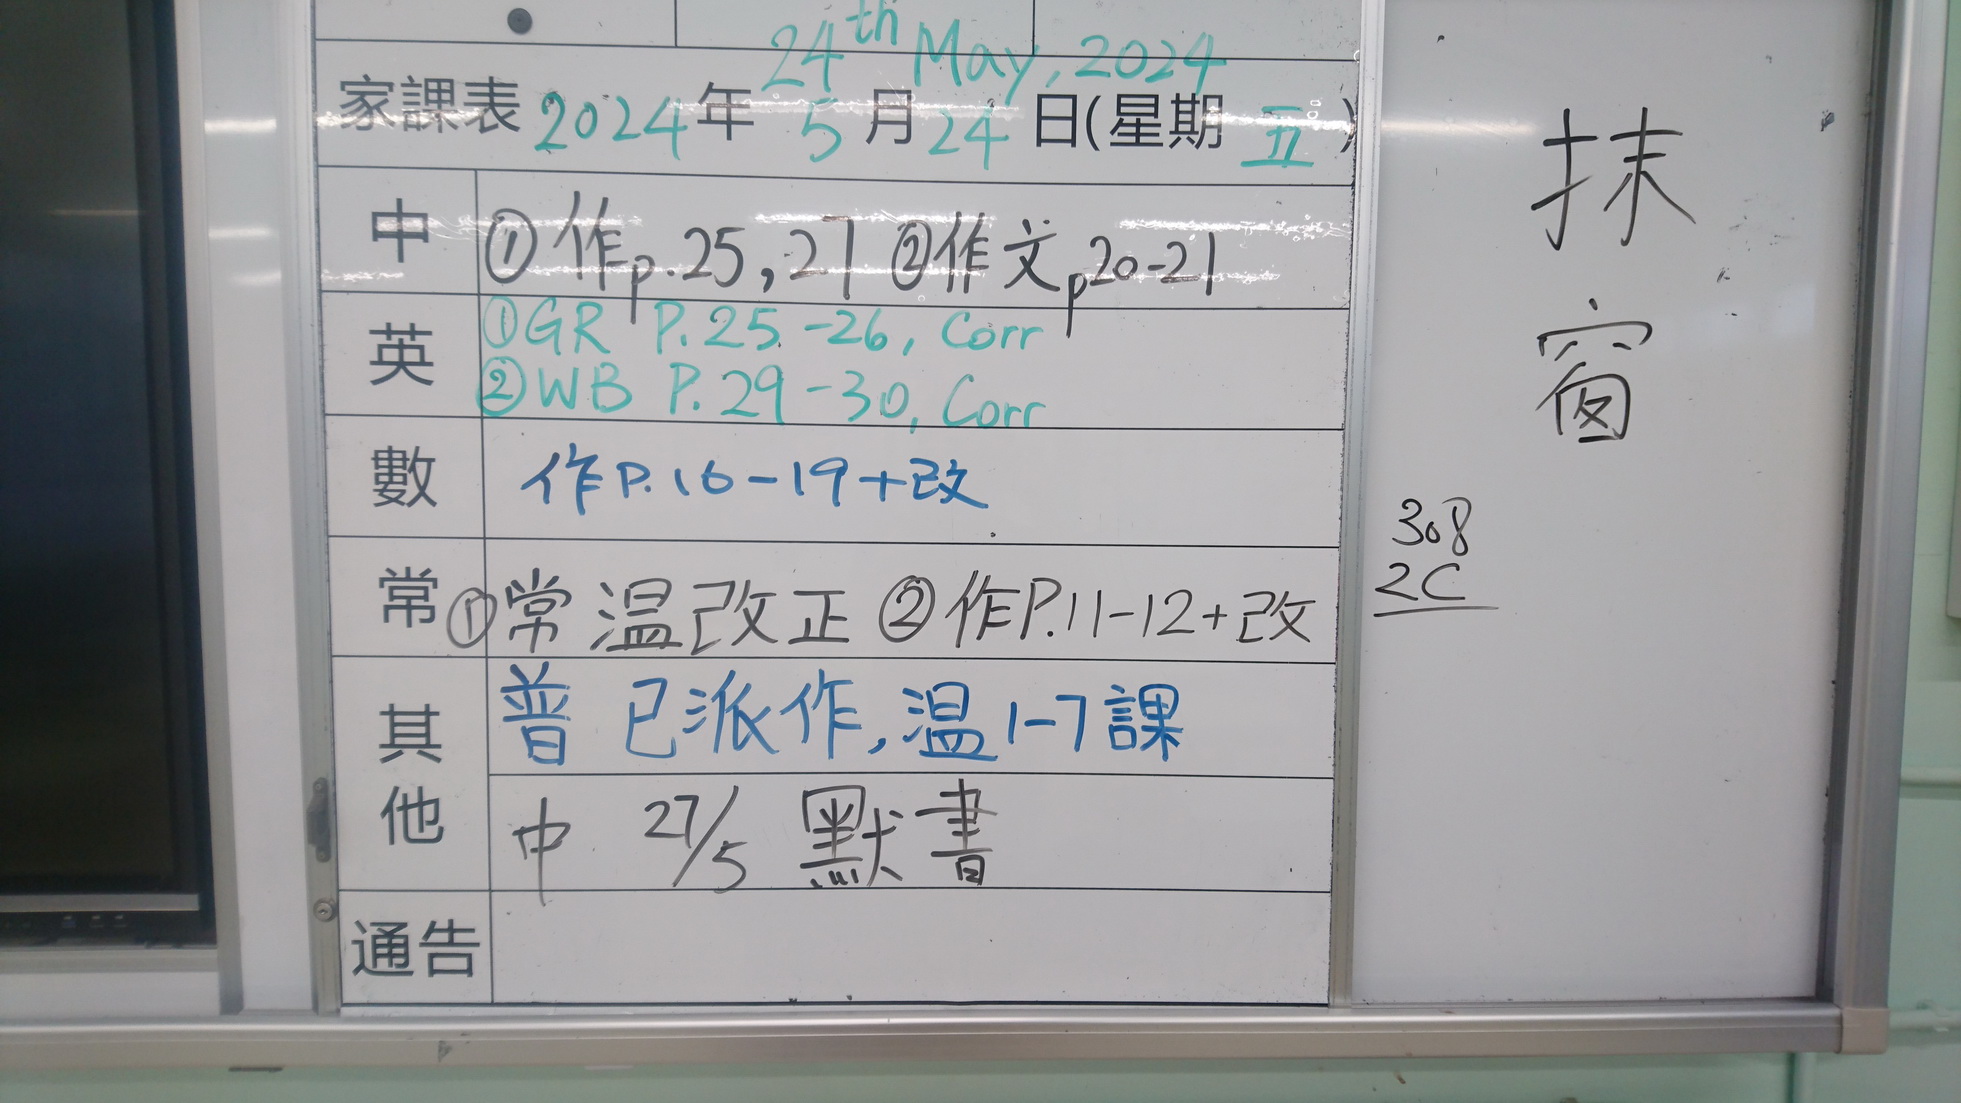 24th May, 2024
家課表 2024年 5月24日(星期五)
中 ①作p.25,21 ②作文p20-21
英 ①GR P.25-26, Corr
②WB P.29-30, Corr
數 作P.16-19+改
常 ①常温改正 ②作P.11-12+改
其他 普 已派作,温1-7課
中 27/5 默書
通告
抹
窗
308
2C